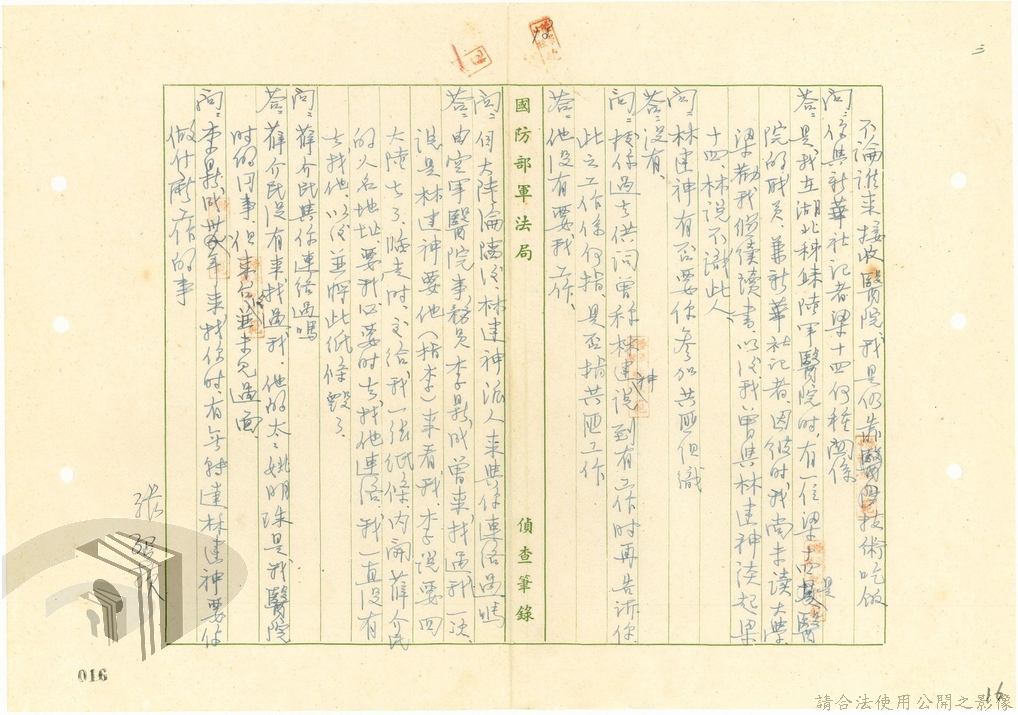 三
不論誰來接收醫院我是仍靠醫技術吃飯
問：你與新華社記者梁十四何種關係
答：是我在湖北秭歸陸軍醫院時，有一位梁十四是醫
院的職員、兼新華社記者、因彼時我尚未讀大學
梁勸我份續讀書、以後我曾與林建神談起梁
十四、林說不識此人、
問：林建神有否要你參加共匪組織
答：沒有、
問：據你過去供詞曾称林建神說到有工作時再告訴你
此之工作係何指、是否指共匪工作
答：他沒有要我工作、
國防部軍法局
偵查筆錄
問：自大陸淪陷後、林建神派人來與你連絡過嗎
答：由空軍醫院事務員李鼎成曾來找過我一次、
說是林建神要他（指李）來看我、李說要回
大陸去了、臨走時、交給我一張紙條、內開薛介民
的人名地址要我必要時去找他連絡、我一直沒有
去找他、以後並將此紙條毀了、
問：薛介民與你連絡過嗎
答：薛介民是有來找過我、他的太太姚明珠是我醫院
時的同事、但來台後並未見過面、
問：李鼎成卅年來找你時、有無轉達林建神要你
做什麼工作的事
016
16
請合法使用公開之影像